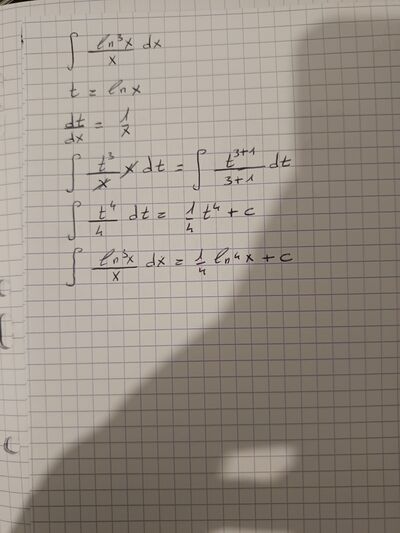 ∫ ln³x / x dx
t = ln x
dt/dx = 1/x
∫ t³/x x dt = ∫ t³⁺¹/3+1 dt
∫ t⁴/4 dt = 1/4 t⁴ + c
∫ ln³x / x dx = 1/4 ln⁴x + c